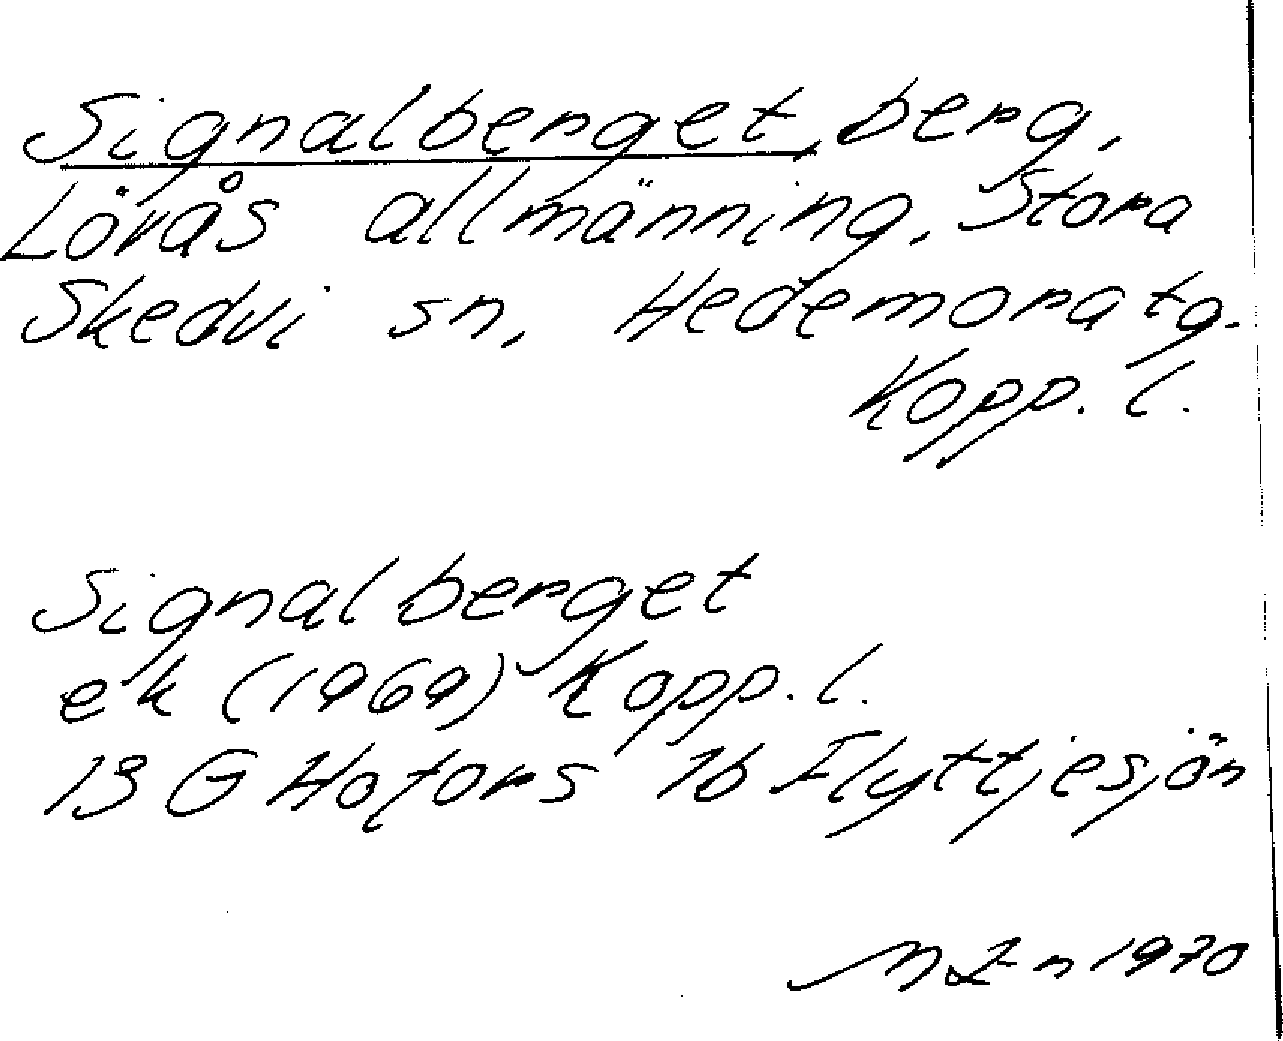 Signalberget, berg,
Lövås allmänning, Stora
Skedvi sn, Hedemora tg.
Kopp. l.
Signalberget
ek (1969) Kopp. l.
13 G Hofors 1b Flyttjesjön
1970